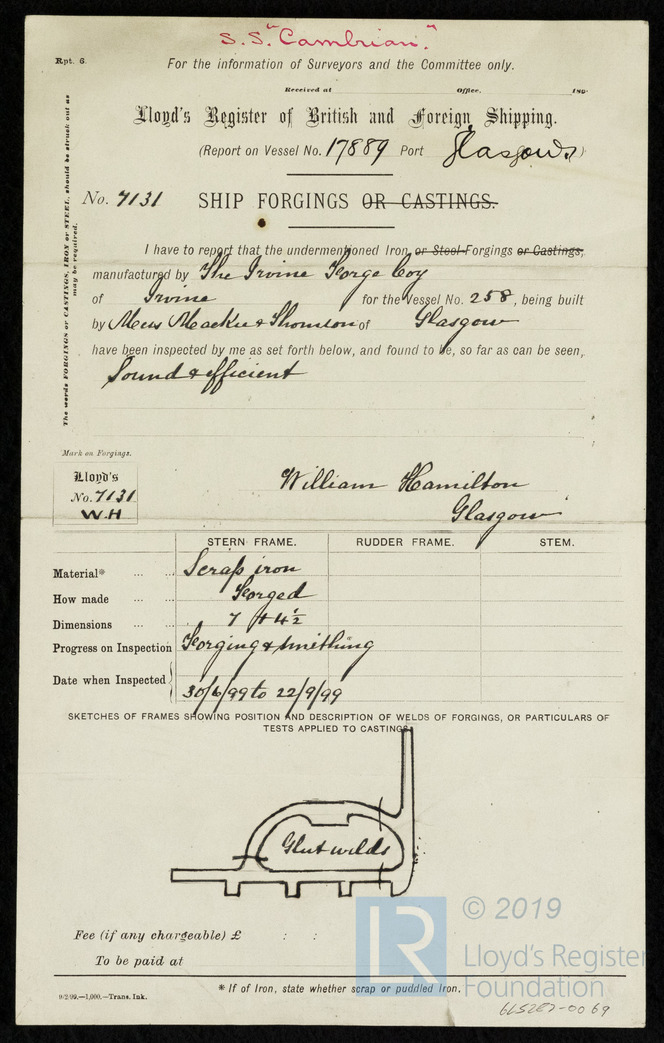 S.S. "Cambrian."
Rpt. 6.
For the information of Surveyors and the Committee only.
Received at Office. 189
Lloyd's Register of British and Foreign Shipping.
(Report on Vessel No. 17889 Port Glasgow)
No. 7131 SHIP FORGINGS OR CASTINGS.
The words FORGINGS or CASTINGS, IRON or STEEL, should be struck out as
may be required.
I have to report that the undermentioned Iron or Steel Forgings or Castings,
manufactured by The Irvine Forge Coy
of Irvine for the Vessel No. 258, being built
by Mess Mackie & Thomson of Glasgow
have been inspected by me as set forth below, and found to be, so far as can be seen,
Sound & efficient
Mark on Forgings.
Lloyd's
No. 7131
W.H
William Hamilton
Glasgow
STERN FRAME. RUDDER FRAME. STEM.
Material* ... ... Scrap iron
How made ... ... Forged
Dimensions ... ... 7 × 4½
Progress on Inspection Forging & smithing
Date when Inspected 30/6/99 to 22/9/99
SKETCHES OF FRAMES SHOWING POSITION AND DESCRIPTION OF WELDS OF FORGINGS, OR PARTICULARS OF
TESTS APPLIED TO CASTINGS.
Glut welds
Fee (if any chargeable) £ : :
To be paid at
* If of Iron, state whether scrap or puddled Iron.
9/2/99.—1,000.—Trans. Ink.
LR
© 2019
Lloyd's Register
Foundation